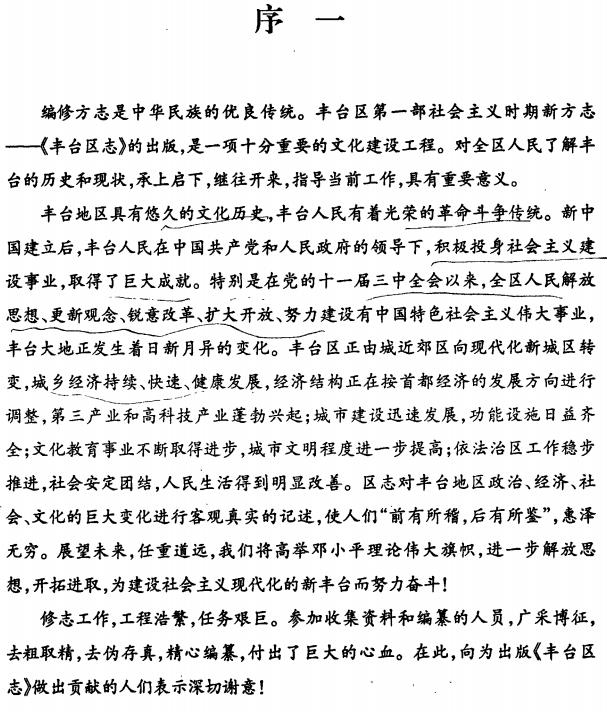 序 一
编修方志是中华民族的优良传统。丰台区第一部社会主义时期新方志
——《丰台区志》的出版,是一项十分重要的文化建设工程。对全区人民了解丰
台的历史和现状,承上启下,继往开来,指导当前工作,具有重要意义。
丰台地区具有悠久的文化历史,丰台人民有着光荣的革命斗争传统。新中
国建立后,丰台人民在中国共产党和人民政府的领导下,积极投身社会主义建
设事业,取得了巨大成就。特别是在党的十一届三中全会以来,全区人民解放
思想、更新观念、锐意改革、扩大开放、努力建设有中国特色社会主义伟大事业,
丰台大地正发生着日新月异的变化。丰台区正由城近郊区向现代化新城区转
变,城乡经济持续、快速、健康发展,经济结构正在按首都经济的发展方向进行
调整,第三产业和高科技产业蓬勃兴起;城市建设迅速发展,功能设施日益齐
全;文化教育事业不断取得进步,城市文明程度进一步提高;依法治区工作稳步
推进,社会安定团结,人民生活得到明显改善。区志对丰台地区政治、经济、社
会、文化的巨大变化进行客观真实的记述,使人们“前有所稽,后有所鉴”,惠泽
无穷。展望未来,任重道远,我们将高举邓小平理论伟大旗帜,进一步解放思
想,开拓进取,为建设社会主义现代化的新丰台而努力奋斗!
修志工作,工程浩繁,任务艰巨。参加收集资料和编纂的人员,广采博征,
去粗取精,去伪存真,精心编纂,付出了巨大的心血。在此,向为出版《丰台区
志》做出贡献的人们表示深切谢意!